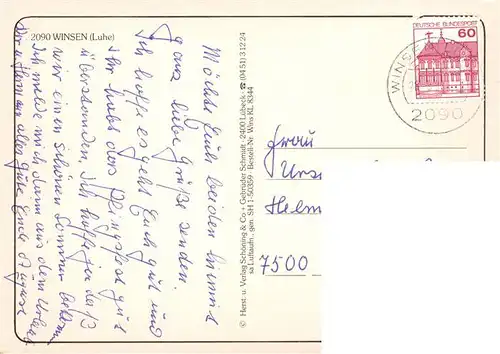 2090 WINSEN (Luhe)
Möcht Euch beiden hiermit
ganz liebe Grüße senden.
Ich hoffe es geht Euch gut und
Ihr habt das Pfingstfest gut
überstanden. Ich hoffe
wir einen schönen Sommer
Ich melde mich dann aus dem Urlaub
alles Gute Eure
© Herst. u. Verlag Schöning & Co + Gebrüder Schmidt · 2400 Lübeck · ☎ (04 51) 3 12 24
sa Luftaufn., gen. SH 1-50359 · Bestell-Nr. Wins KL 8344
60
DEUTSCHE BUNDESPOST
WINSE
2090
Frau
Urs
Helm
7500